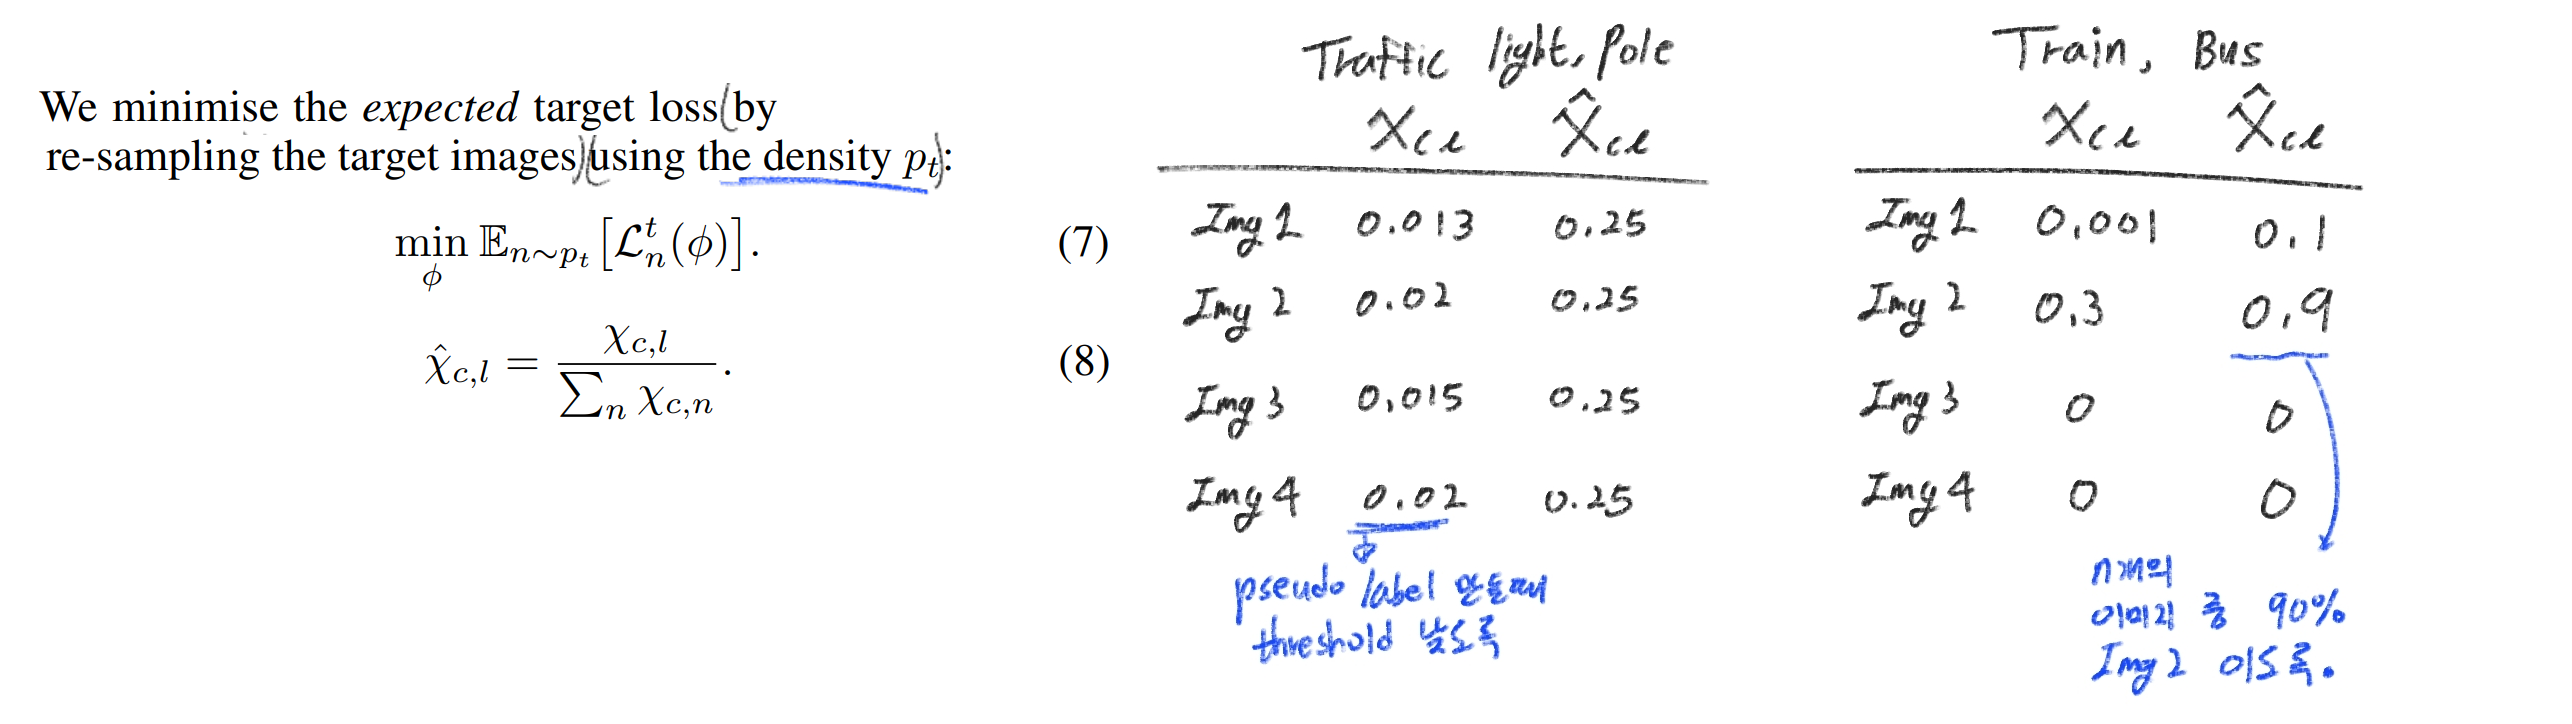 We minimise the expected target loss (by
re-sampling the target images) (using the density p_t):
min_ϕ 𝔼_{n∼p_t} [ℒ_n^t(ϕ)]. (7)
χ̂_{c,l} = χ_{c,l} / ∑_n χ_{c,n}. (8)
Traffic light, Pole
χ_{cl} χ̂_{cl}
Img 1 0.013 0.25
Img 2 0.02 0.25
Img 3 0.015 0.25
Img 4 0.02 0.25
pseudo label 만들때
threshold 낮도록
Train, Bus
χ_{cl} χ̂_{cl}
Img 1 0.001 0.1
Img 2 0.3 0.9
Img 3 0 0
Img 4 0 0
n개의
이미지 중 90%
Img 2 이도록.